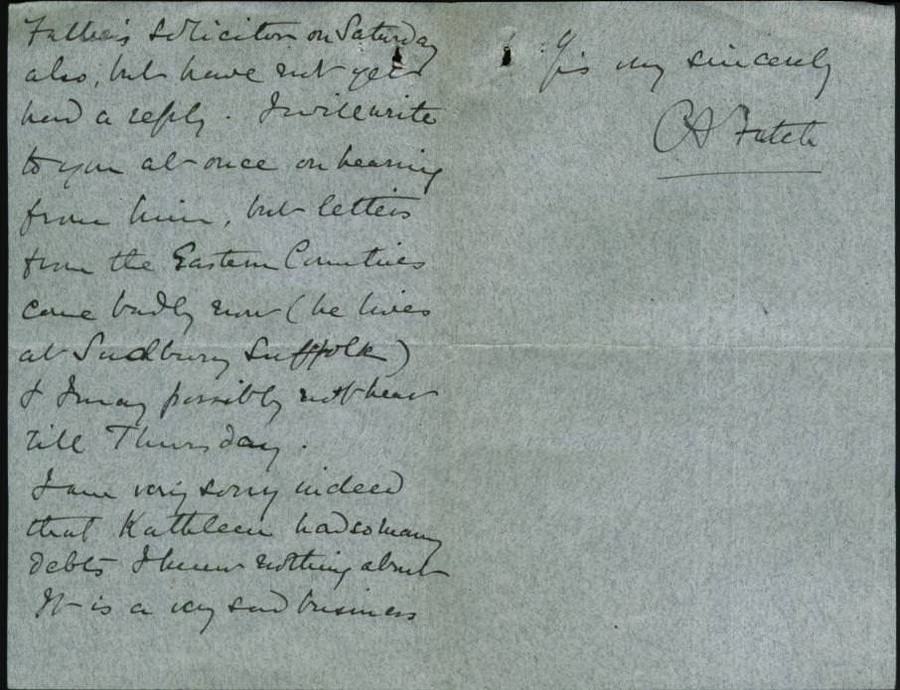 Father's Solicitor on Saturday
also, but have not yet
had a reply. I will write
to you at once on hearing
from him, but letters
from the Eastern Counties
come badly now (he lives
at Sudbury Suffolk)
& I may possibly not hear
till Thursday.
I am very sorry indeed
that Kathleen had so many
debts I knew nothing about
It is a very sad business
Yrs very sincerely